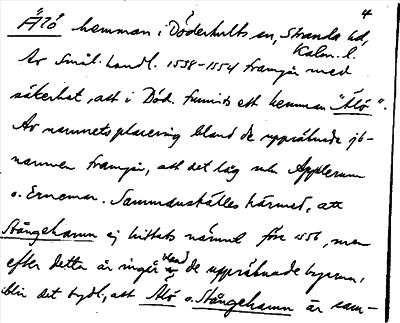 4
"Älö hemman i Döderhults sn, Stranda hd,
Kalm. l.
Av Smål. Landl. 1538-1554 framgår med
säkerhet, att i Död. funnits ett hemman "Älö".
Av namnets placering bland de uppräknade jb-
namnen framgår, att det låg mln Applerum
o. Ernemar. Sammanställes härmed, att
Stångehamn ej hittats nämnt före 1556, men
efter detta år ingår bland de uppräknade byarna,
blir det tydl., att Älö o. Stångehamn är sam-